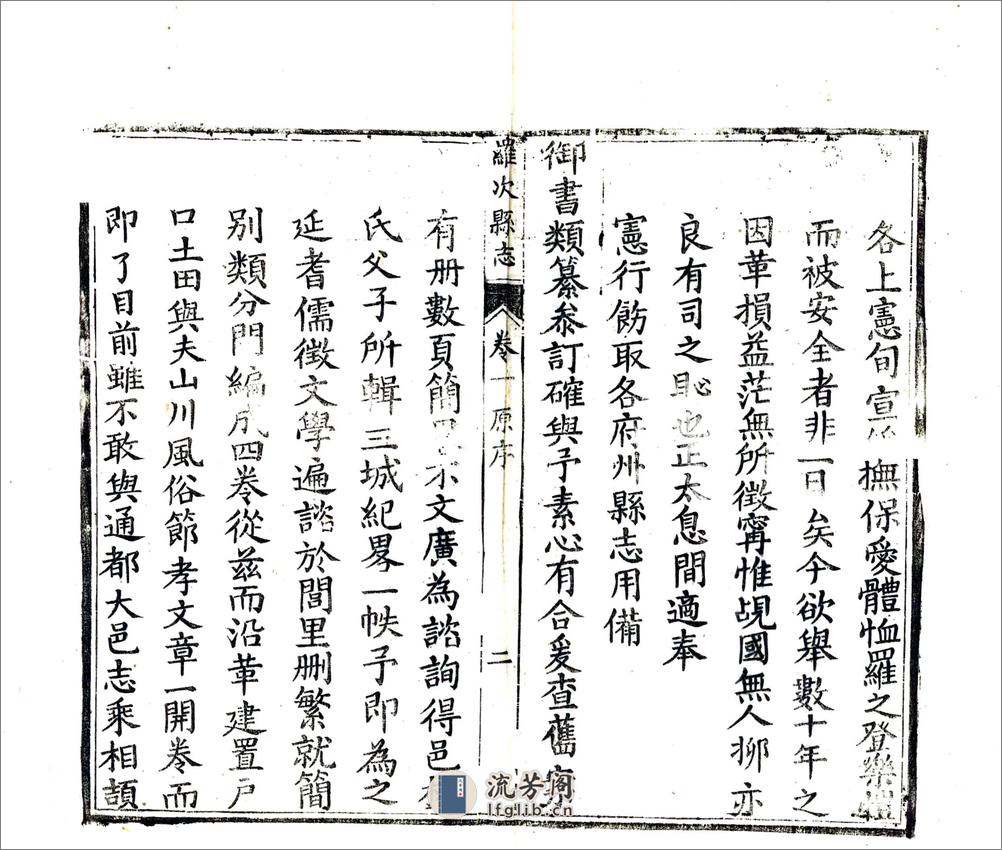 各上憲旬宣 撫保愛體恤羅之登樂
而被安全者非一日矣今欲舉數十年之
因革損益茫無所徵寧惟覘國無人抑亦
良有司之恥也正太息間適奉
憲行飭取各府州縣志用備
御書類纂叅訂確與予素心有合爰查舊
羅次縣志 卷一 原序 二
有册數頁簡 不文廣為諮詢得邑
氏父子所輯三城紀畧一帙予即為之
延耆儒徵文學遍諮於閭里删繁就簡
别類分門編成四卷從兹而沿革建置戸
口土田與夫山川風俗節孝文章一開卷而
即了目前雖不敢與通都大邑志乘相頡
流芳阁
lfglib.com